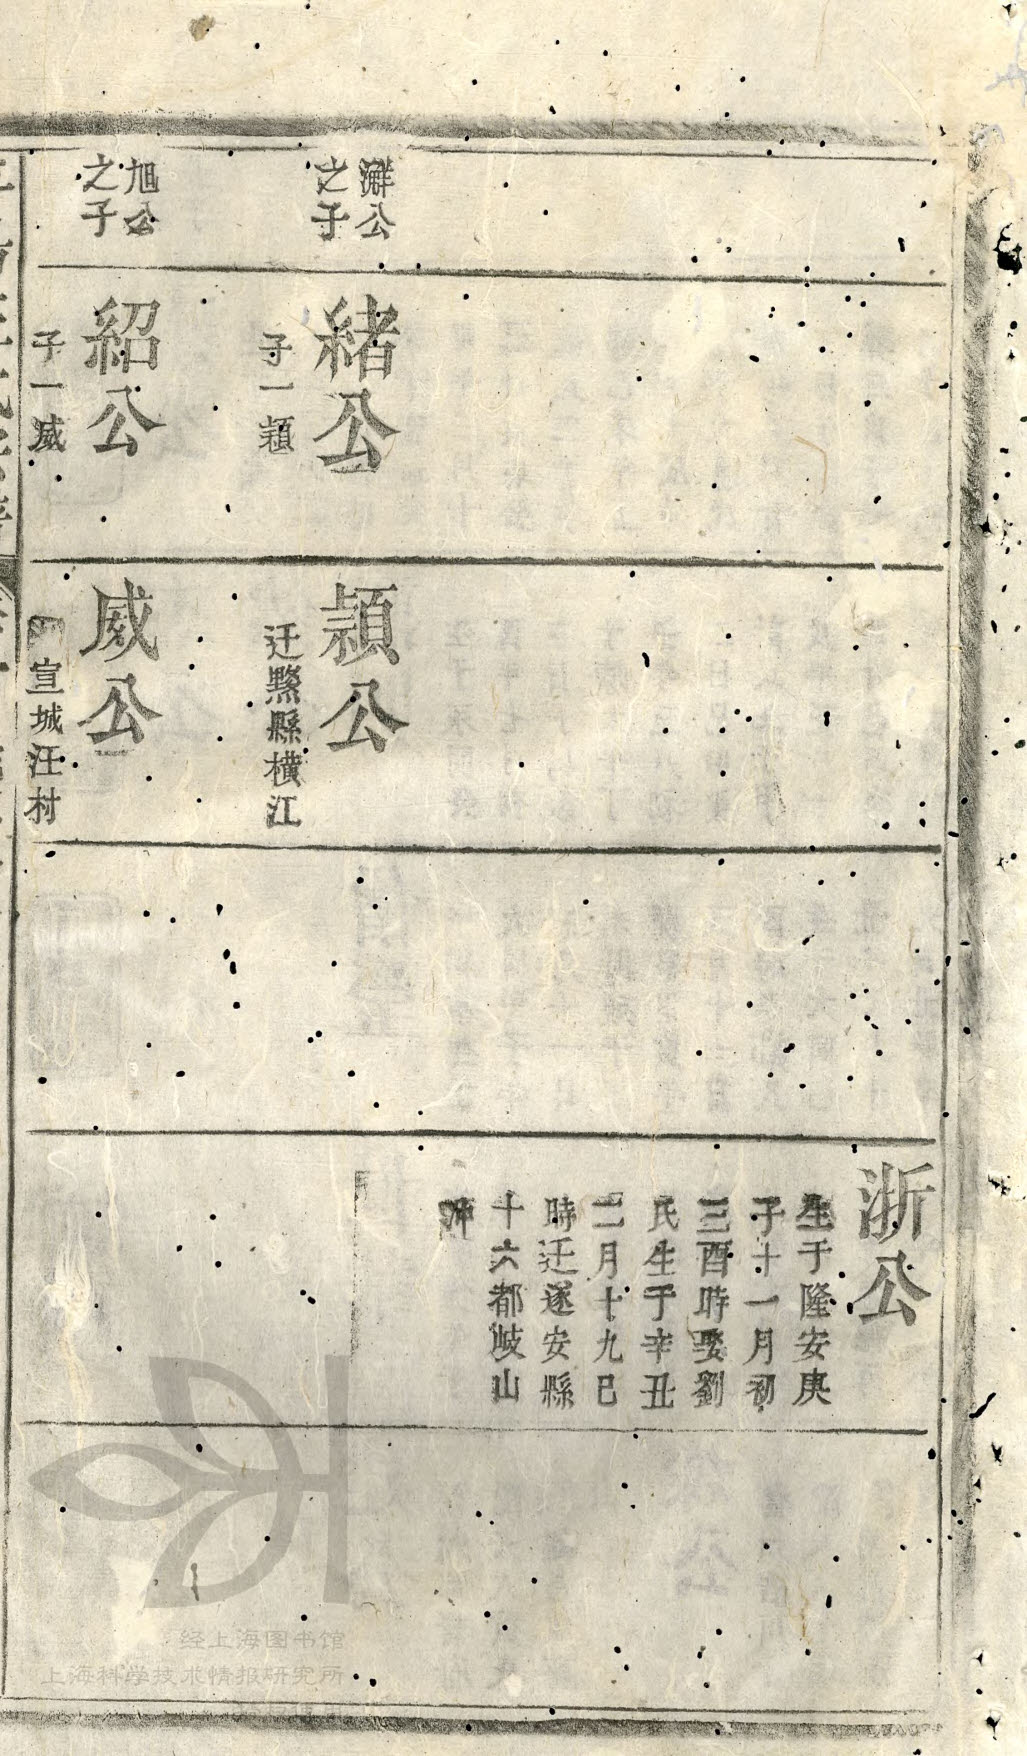 浙公
生于隆安庚
子十一月初
三酉時娶劉
氏生于辛丑
二月十九巳
時迁遂安縣
十六都歧山
公
之子
緒公
子一頴
頴公
迁黟縣橫江
旭公
之子
紹公
子一威
威公
宣城汪村
经上海图书馆
上海科学技术情报研究所